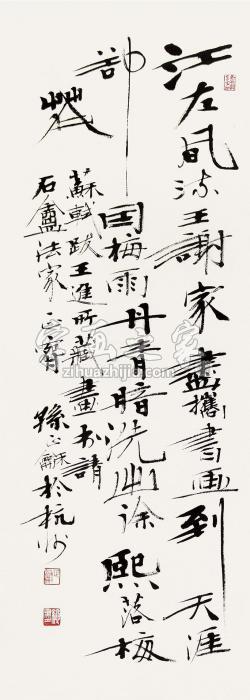 江左風流王謝家盡攜書画到天涯
卻因梅雨丹青暗洗出徐熙落梅
花
蘇軾跋王進所藏畫 請
石盦法家正 孫正龢於杭州
zihuazhijia.com